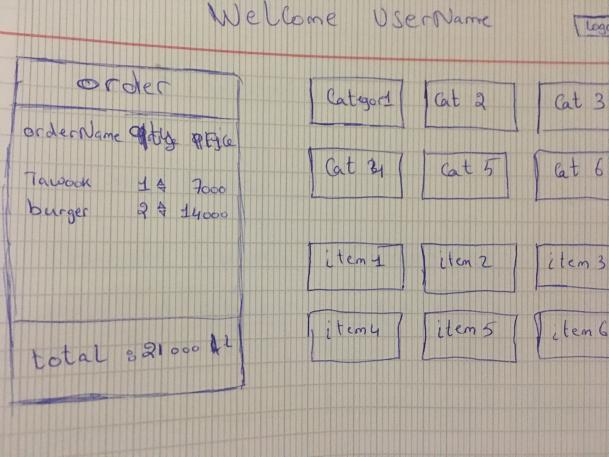 Welcome UserName
order
orderName qty price
Tawook 1 7000
burger 2 14000
total : 21000 LL
Categor1 Cat 2 Cat 3
Cat 4 Cat 5 Cat 6
item 1 item 2 item 3
item4 item5 item6